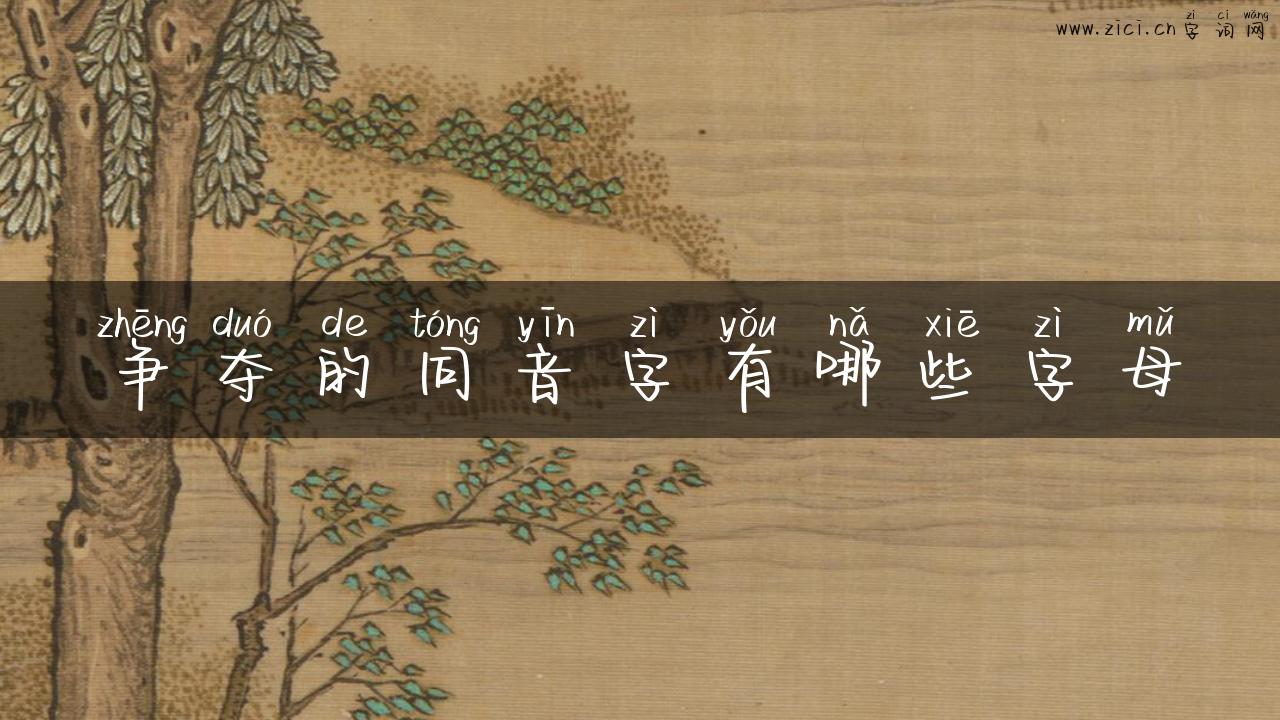 zì cí wǎng
www.zici.cn 字词网
zhēng duó de tóng yīn zì yǒu nǎ xiē zì mǔ
争夺的同音字有哪些字母